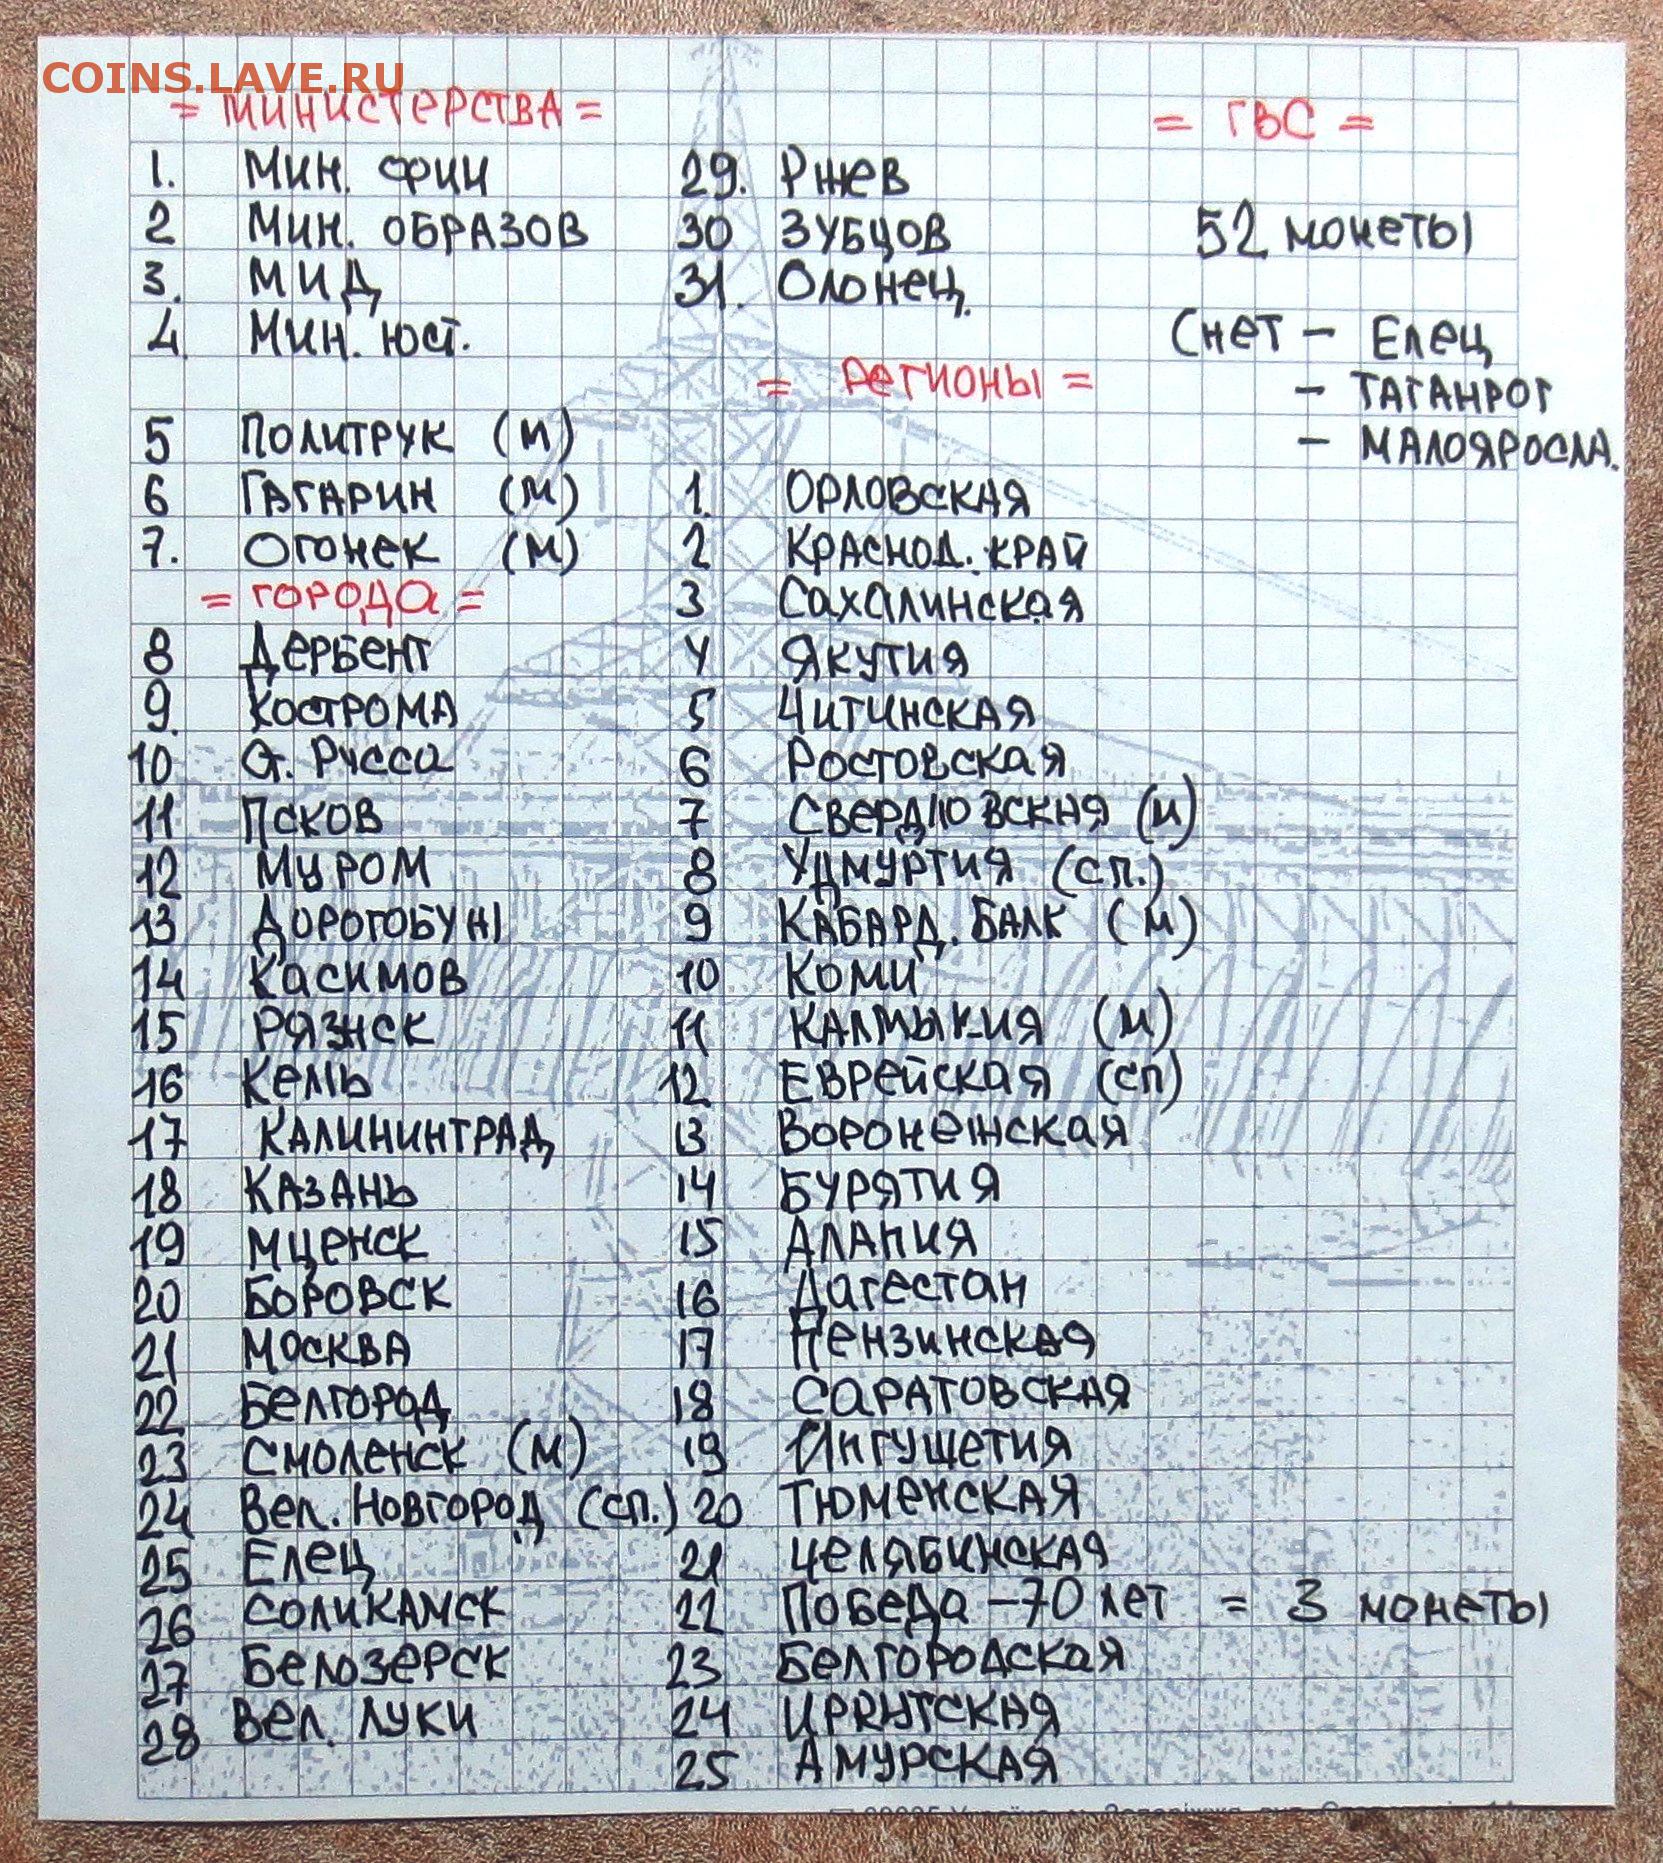 COINS.LAVE.RU
= МИНИСТЕРСТВА =
1. МИН. ФИН
2 МИН. ОБРАЗОВ
3. МИД
4 МИН. ЮСТ.
5 ПОЛИТРУК (М)
6 ГАГАРИН (М)
7. ОГОНЕК (М)
= ГОРОДА =
8 Дербент
9. КОСТРОМА
10 Ст. Русса
11 ПСКОВ
12 МУРОМ
13 ДОРОГОБУЖ
14 Касимов
15 РЯЖСК
16 Кемь
17 КАЛИНИНГРАД
18 КАЗАНЬ
19 МЦЕНСК
20 БОРОВСК
21 МОСКВА
22 Белгород
23 Смоленск (М)
24 Вел. Новгород (сп.)
25 Елец
26 СОЛИКАМСК
27 БЕЛОЗЕРСК
28 Вел. ЛУКИ
29. Ржев
30 ЗУБЦОВ
31. Олонец
= РЕГИОНЫ =
1. ОРЛОВСКАЯ
2 КРАСНОД. КРАЙ
3 Сахалинская
4 ЯКУТИЯ
5 ЧИТИНСКАЯ
6 Ростовская
7 СВЕРДЛОВСКАЯ (М)
8 УДМУРТИЯ (СП.)
9 КАБАРД. БАЛК (М)
10 КОМИ
11 КАЛМЫКИЯ (М)
12 ЕВРЕЙСКАЯ (СП)
13 ВОРОНЕЖСКАЯ
14 БУРЯТИЯ
15 АЛАНИЯ
16 Дагестан
17 Пензинская
18 САРАТОВСКАЯ
19 Ингушетия
20 ТЮМЕНСКАЯ
21 ЧЕЛЯБИНСКАЯ
22 ПОБЕДА – 70 лет = 3 монеты
23 БЕЛГОРОДСКАЯ
24 ИРКУТСКАЯ
25 АМУРСКАЯ
= ГВС =
52 монеты
(нет – Елец
– ТАГАНРОГ
– МАЛОЯРОСЛА.